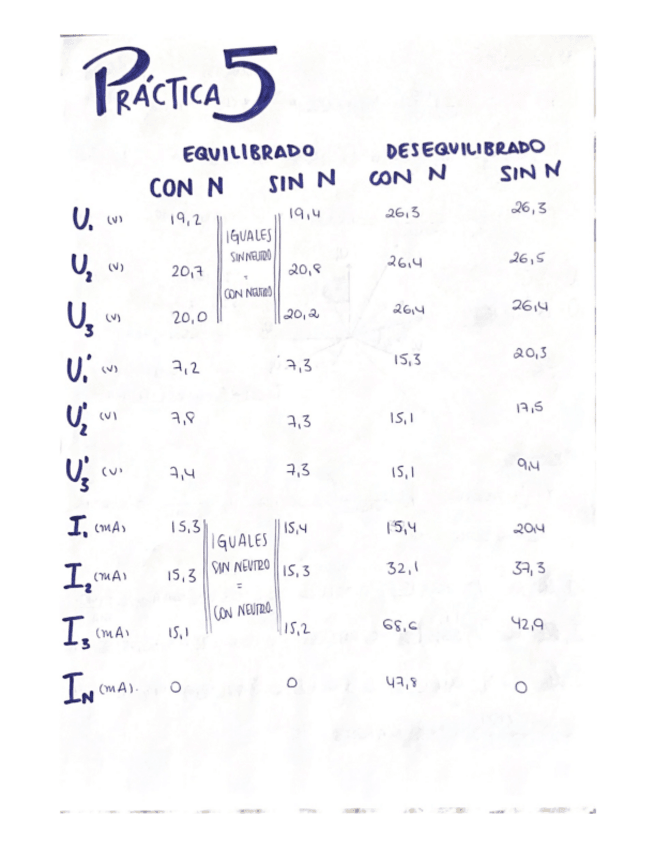 PRÁCTICA 5
EQUILIBRADO DESEQUILIBRADO
CON N SIN N CON N SIN N
U₁ (V) 19,2 19,4 26,3 26,3
U₂ (V) 20,7 20,8 26,4 26,5
U₃ (V) 20,0 20,2 26,4 26,4
IGUALES
SIN NEUTRO
CON NEUTRO
U₁' (V) 7,2 7,3 15,3 20,3
U₂' (V) 7,8 7,3 15,1 17,5
U₃' (V) 7,4 7,3 15,1 9,4
I₁ (mA) 15,3 15,4 15,4 20,4
I₂ (mA) 15,3 15,3 32,1 37,3
I₃ (mA) 15,1 15,2 68,6 42,9
IGUALES
SIN NEUTRO
=
CON NEUTRO.
I_N (mA). 0 0 47,8 0